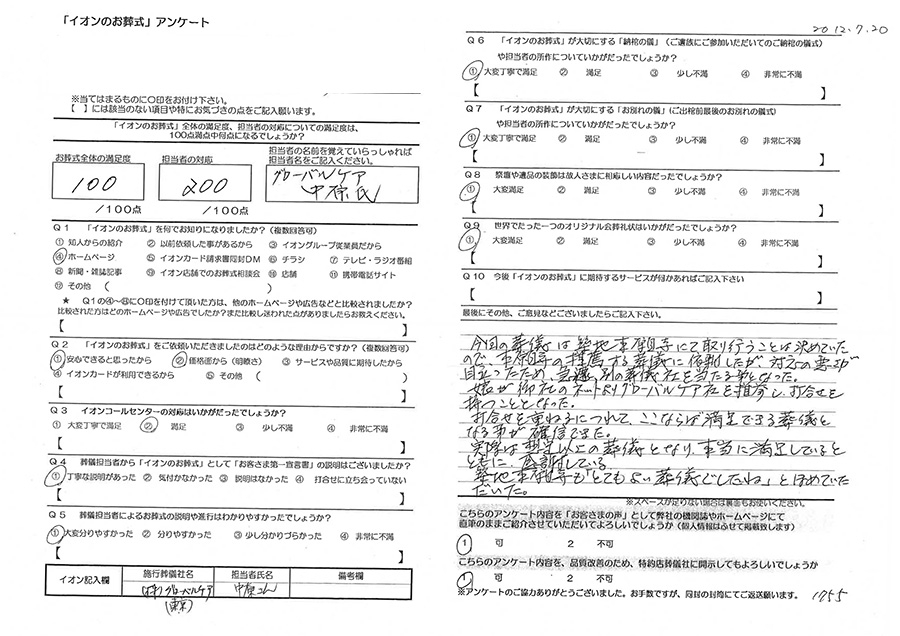 「イオンのお葬式」アンケート
※当てはまるものに○印をお付け下さい。
【　】には該当のない項目や特にお気づきの点をご記入願います。
「イオンのお葬式」全体の満足度、担当者の対応についての満足度は、
100点満点中何点になるでしょうか？
お葬式全体の満足度
100
／100点
担当者の対応
200
／100点
担当者の名前を覚えていらっしゃれば
担当者名をご記入ください。
グローバルケア
中原氏
Q1　「イオンのお葬式」を何でお知りになりましたか？（複数回答可）
① 知人からの紹介　② 以前依頼した事があるから　③ イオングループ従業員だから
④ ホームページ　⑤ イオンカード請求書同封DM　⑥ チラシ　⑦ テレビ・ラジオ番組
⑧ 新聞・雑誌記事　⑨ イオン店舗でのお葬式相談会　⑩ 店舗　⑪ 携帯電話サイト
⑫ その他（　）
★　Q1の④～⑪に○印を付けて頂いた方は、他のホームページや広告などと比較されましたか？
比較された方はどのホームページや広告でしたか？また比較し迷われた点がありましたらお教えください。
【　】
Q2　「イオンのお葬式」をご依頼いただきましたのはどのような理由からですか？（複数回答可）
① 安心できると思ったから　② 価格面から（明瞭さ）　③ サービスや品質に期待したから
④ イオンカードが利用できるから　⑤ その他（　）
【　】
Q3　イオンコールセンターの対応はいかがだったでしょうか？
① 大変丁寧で満足　② 満足　③ 少し不満　④ 非常に不満
【　】
Q4　葬儀担当者から「イオンのお葬式」として「お客さま第一宣言書」の説明はございましたか？
① 丁寧な説明があった　② 気付かなかった　③ 説明はなかった　④ 打合せに立ち合っていない
【　】
Q5　葬儀担当者によるお葬式の説明や進行はわかりやすかったでしょうか？
① 大変分りやすかった　② 分りやすかった　③ 少し分りづらかった　④ 非常に不満
【　】
イオン記入欄　施行葬儀社名　担当者氏名　備考欄
(株)グローバルケア　中原さん
(東京)
2012.7.20
Q6　「イオンのお葬式」が大切にする「納棺の儀」（ご遺族にご参加いただいてのご納棺の儀式）
や担当者の所作についていかがだったでしょうか？
① 大変丁寧で満足　② 満足　③ 少し不満　④ 非常に不満
【　】
Q7　「イオンのお葬式」が大切にする「お別れの儀」（ご出棺前最後のお別れの儀式）
や担当者の所作についていかがだったでしょうか？
① 大変丁寧で満足　② 満足　③ 少し不満　④ 非常に不満
【　】
Q8　祭壇や遺品の装飾は故人さまに相応しい内容だったでしょうか？
① 大変満足　② 満足　③ 少し不満　④ 非常に不満
【　】
Q9　世界でたった一つのオリジナル会葬礼状はいかがだったでしょうか？
① 大変満足　② 満足　③ 少し不満　④ 非常に不満
【　】
Q10　今後「イオンのお葬式」に期待するサービスが何かあればご記入下さい
【　】
最後にその他、ご意見などございましたらご記入下さい。
今回の葬儀は築地本願寺にて取り行うことは決めていた
ので、本願寺の推薦する葬儀に依頼したが、対応の悪さが
目立ったため、急遽、別の葬儀社を当たる事となった。
娘が御社のネットよりグローバルケア社を推薦し、打合せを
持つこととなった。
打合せを重ねるにつれて、ここならば満足できる葬儀と
なる事が確信できた。
実際は想定以上の葬儀となり、本当に満足していると
ともに、感謝している
築地本願寺も「とてもよい葬儀でしたね」とほめていた
だいた。
※スペースが足りない場合は裏面もお使いください。
こちらのアンケート内容を「お客さまの声」として弊社の機関誌やホームページにて
直筆のままご紹介させていただいてよろしいでしょうか（個人情報はふせて掲載致します）
1　可　2　不可
こちらのアンケート内容を、品質改善のため、特約店葬儀社に開示してもよろしいでしょうか
1　可　2　不可
※アンケートのご協力ありがとうございました。お手数ですが、同封の封筒にてご返送願います。
1755